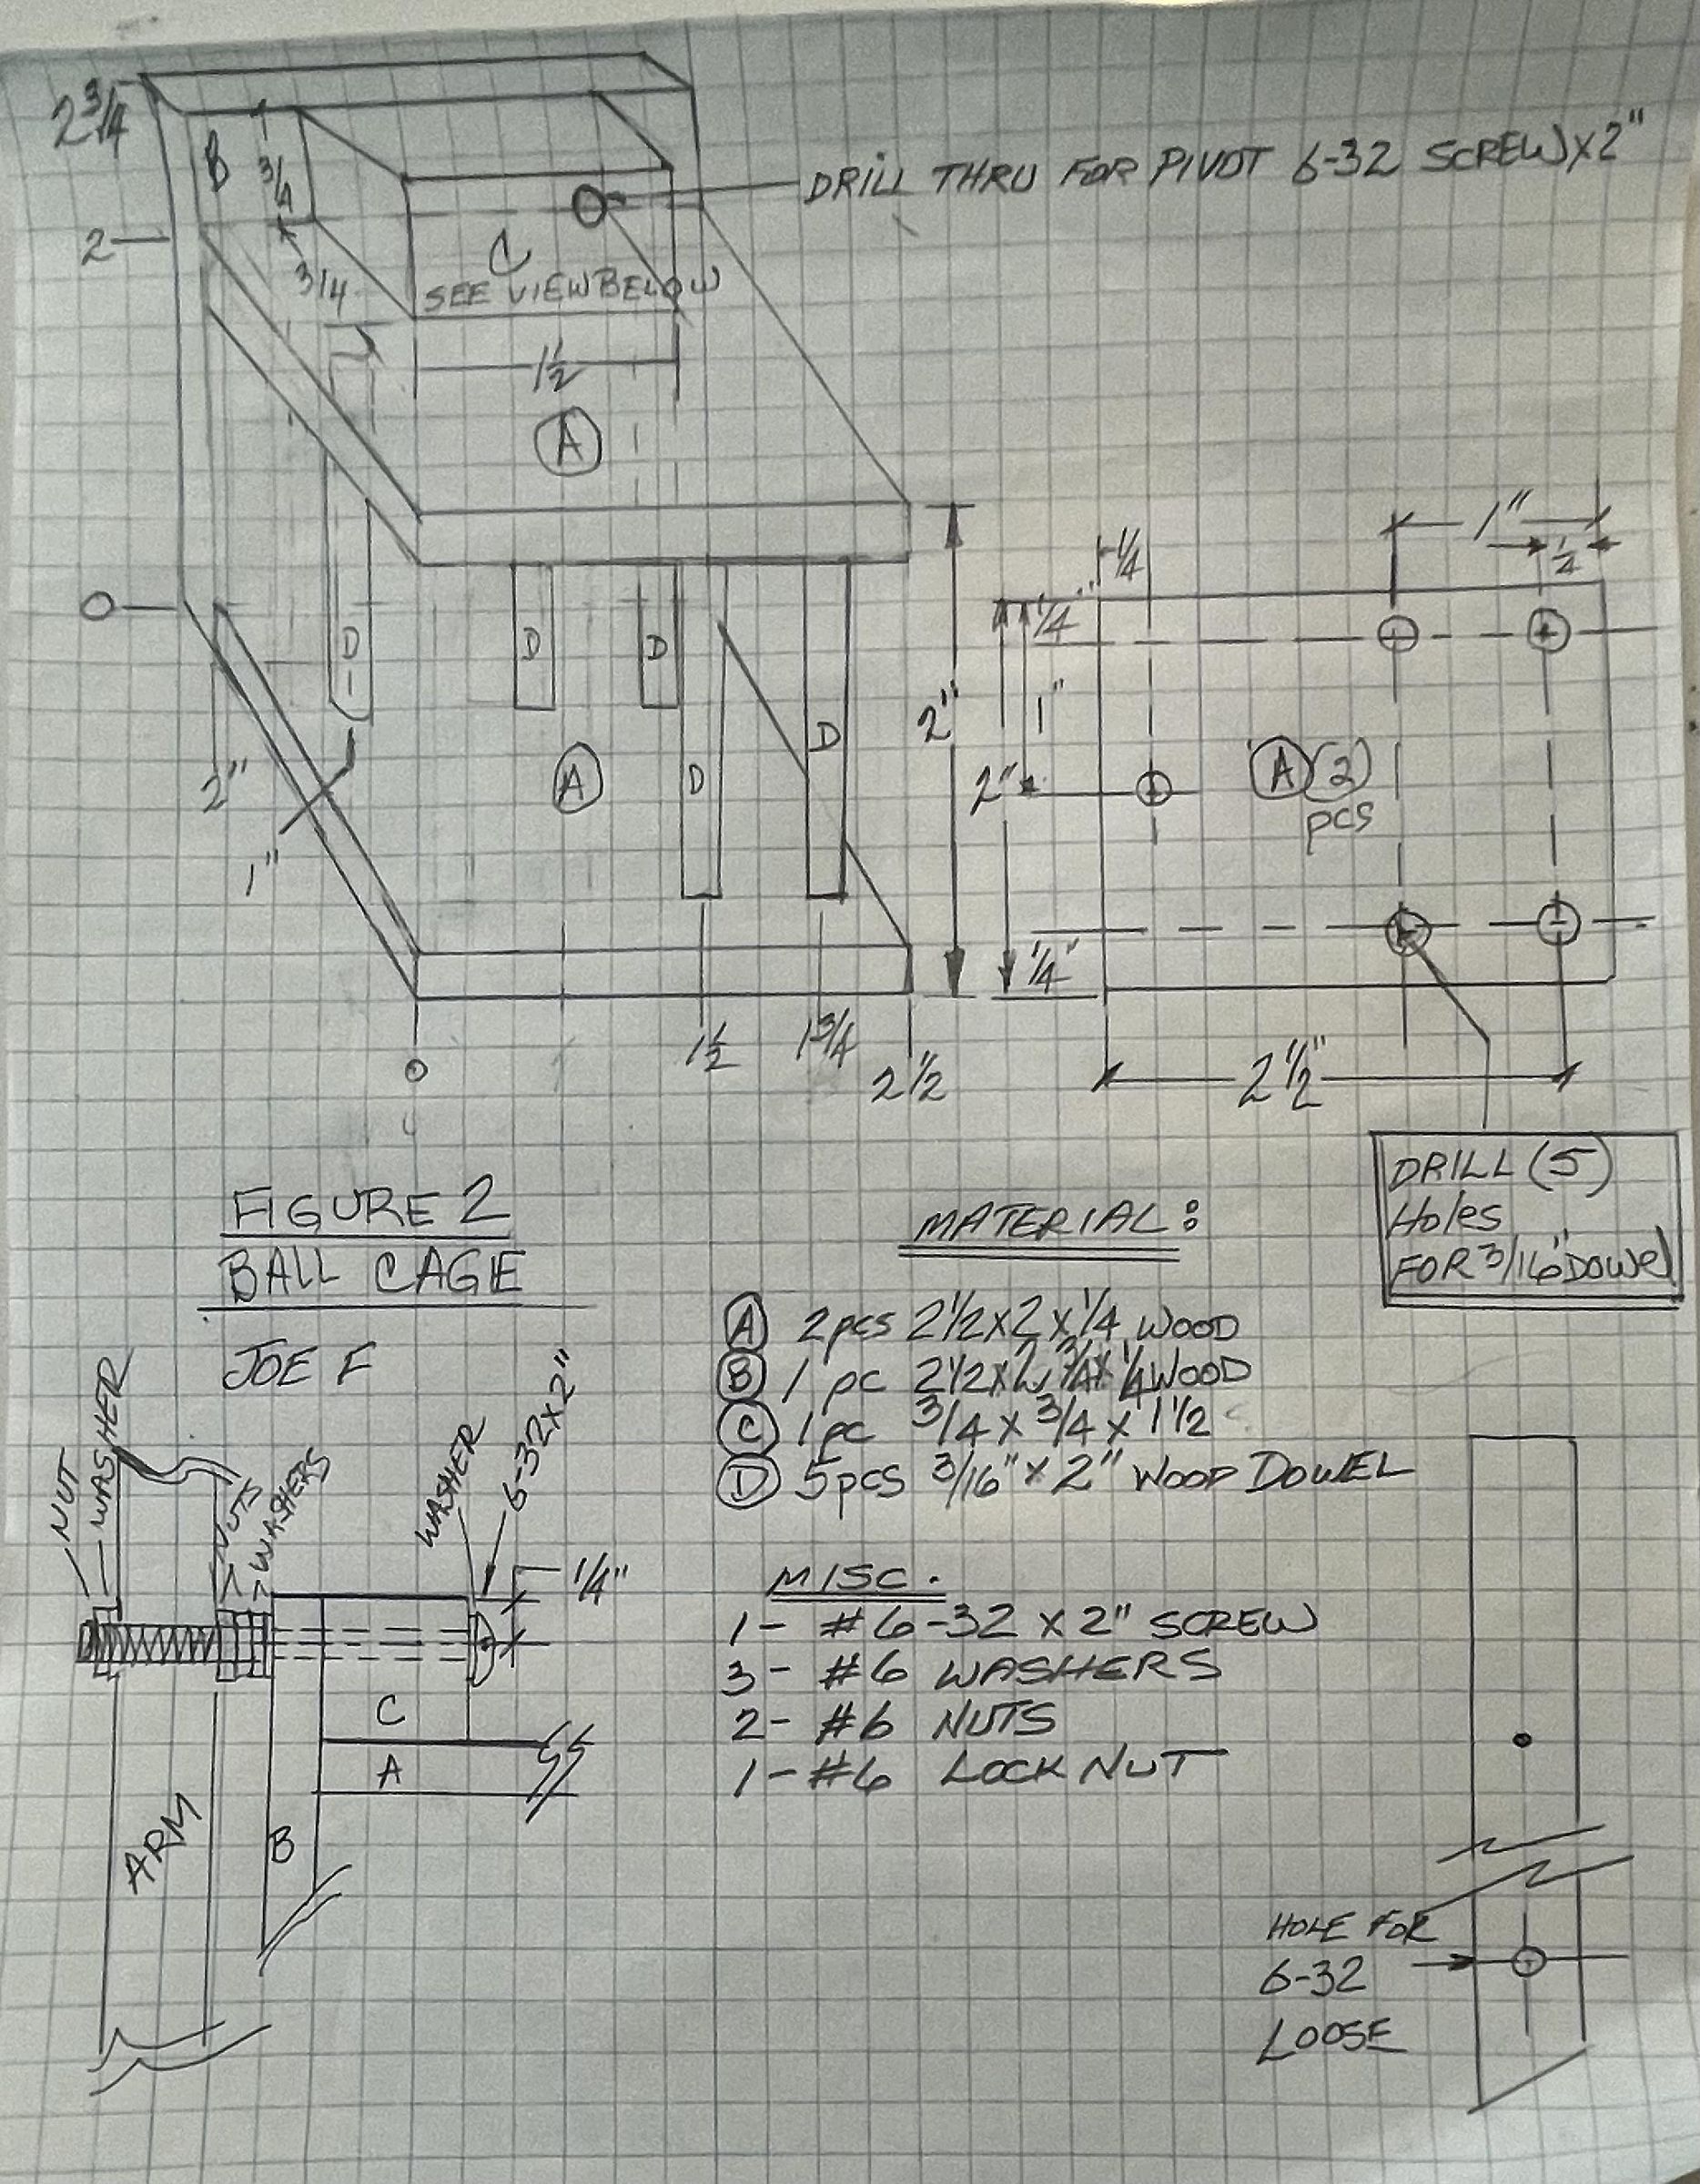 2 3/4
B
3/4
DRILL THRU FOR PIVOT 6-32 SCREW x 2"
2
3/4
C
SEE VIEW BELOW
1 1/2
A
1"
1/4
1/4
1/4"
0
D
D
D
D
D
2"
1"
2"
A (2)
pcs
2"
1"
A
1/4"
0
1 1/2
1 3/4
2 1/2
2 1/2"
DRILL (5)
Holes
FOR 3/16" DOWEL
FIGURE 2
BALL CAGE
JOE F
MATERIAL:
A 2pcs 2 1/2 x 2 x 1/4 WOOD
B 1 pc 2 1/2 x 2 3/4 x 1/4 WOOD
C 1 pc 3/4 x 3/4 x 1 1/2
D 5pcs 3/16" x 2" WOOD DOWEL
NUT
WASHER
NUTS
WASHERS
WASHER
6-32x2"
1/4"
C
A
B
ARM
MISC.
1- #6-32 x 2" SCREW
3- #6 WASHERS
2- #6 NUTS
1- #6 LOCK NUT
HOLE FOR
6-32
LOOSE